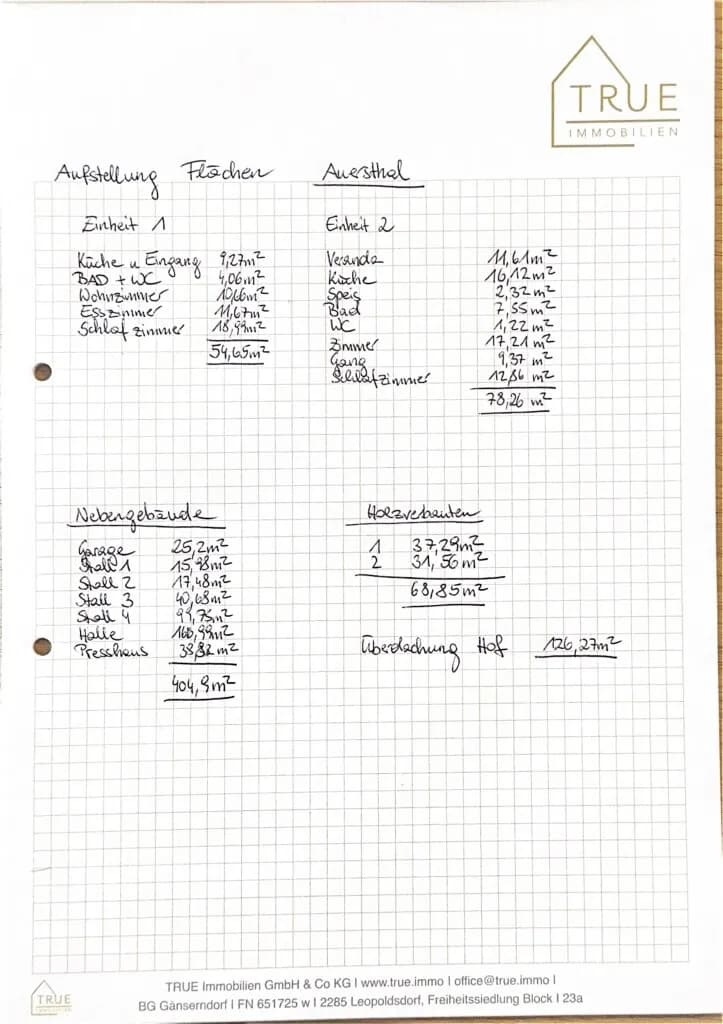 TRUE
IMMOBILIEN
Aufstellung Flächen Auersthal
Einheit 1
Küche u Eingang 9,27m²
BAD + WC 4,06m²
Wohnzimmer 10,66m²
Esszimmer 11,67m²
Schlafzimmer 18,99m²
54,65m²
Einheit 2
Veranda 11,61m²
Küche 16,12m²
Speis 2,32m²
Bad 7,55m²
WC 1,22m²
Zimmer 17,21m²
Gang 9,37m²
Schlafzimmer 12,86m²
78,26m²
Nebengebäude
Garage 25,2m²
Stall 1 15,98m²
Stall 2 17,48m²
Stall 3 40,68m²
Stall 4
Halle
Presshaus
404,9m²
Holzverbauten
1 37,29m²
2 31,56m²
68,85m²
Überdachung Hof 126,27m²
TRUE
IMMOBILIEN
TRUE Immobilien GmbH & Co KG I www.true.immo I office@true.immo I
BG Gänserndorf I FN 651725 w I 2285 Leopoldsdorf, Freiheitssiedlung Block I 23a